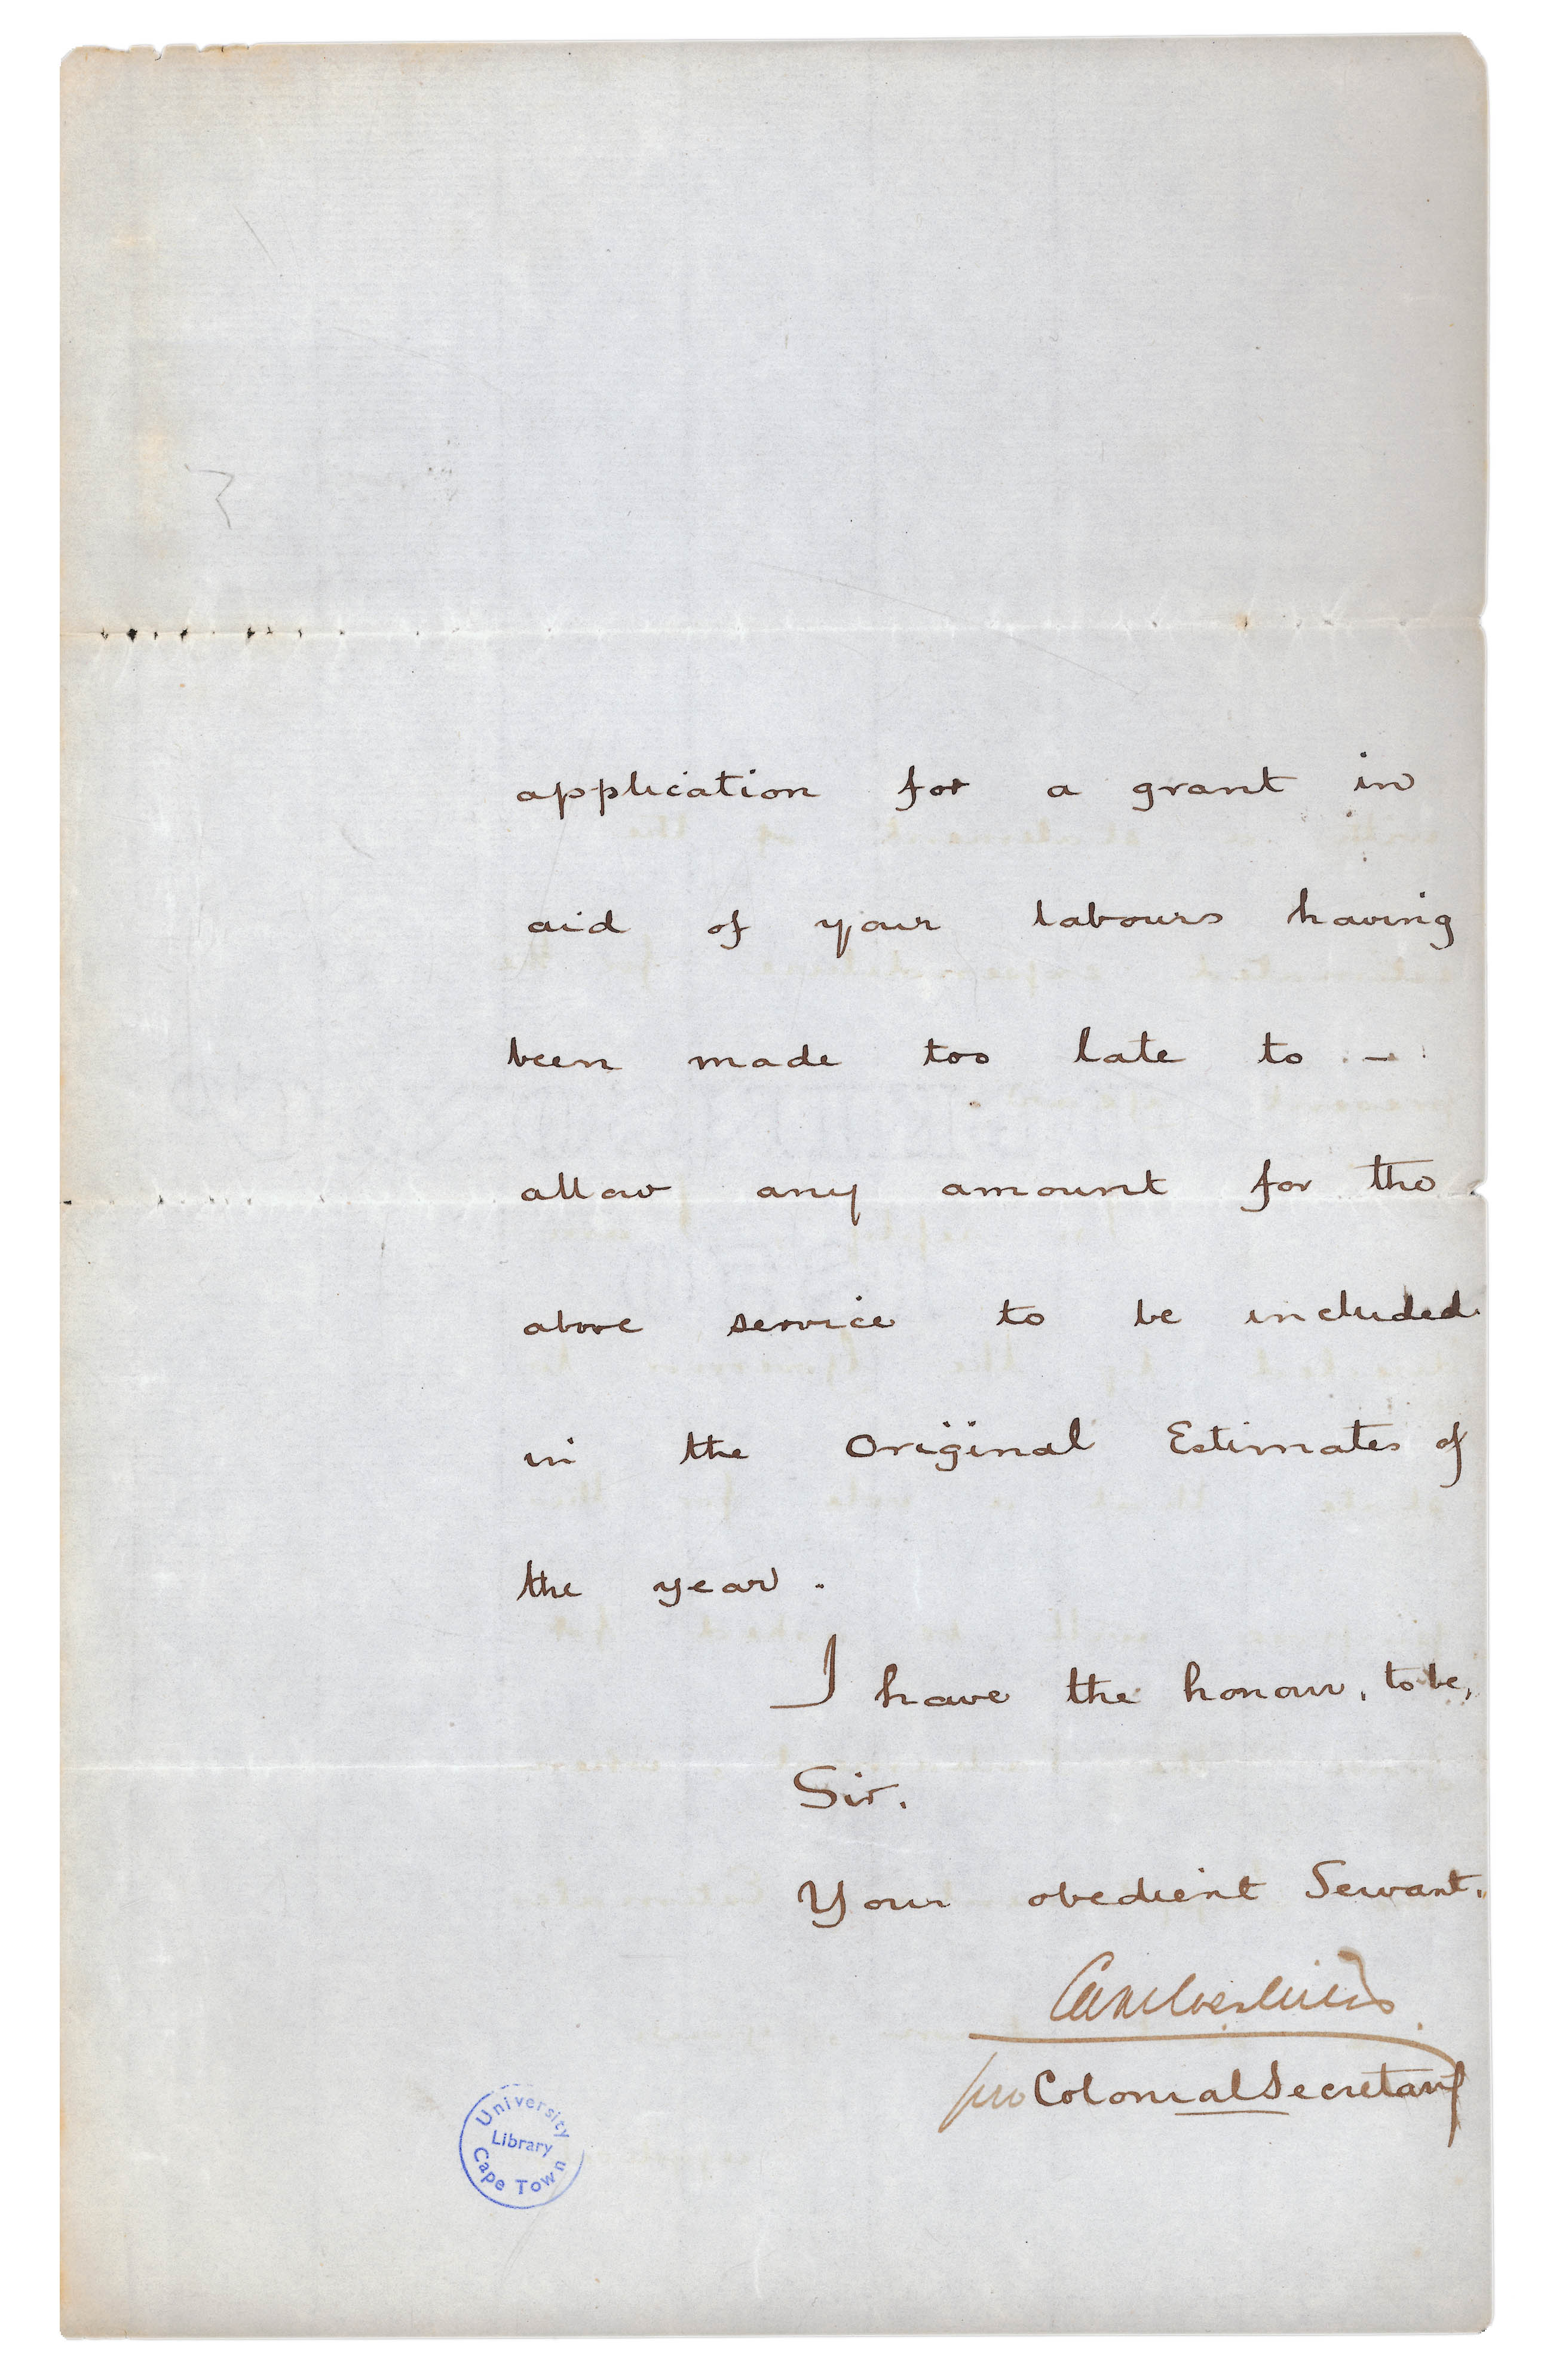 application for a grant in
aid of your labours having
been made too late to -
allow any amount for the
above service to be included
in the Original Estimates of
the year.
I have the honour, to be,
Sir.
Your obedient Servant.
pro Colonial Secretary
University
Library
Cape Town